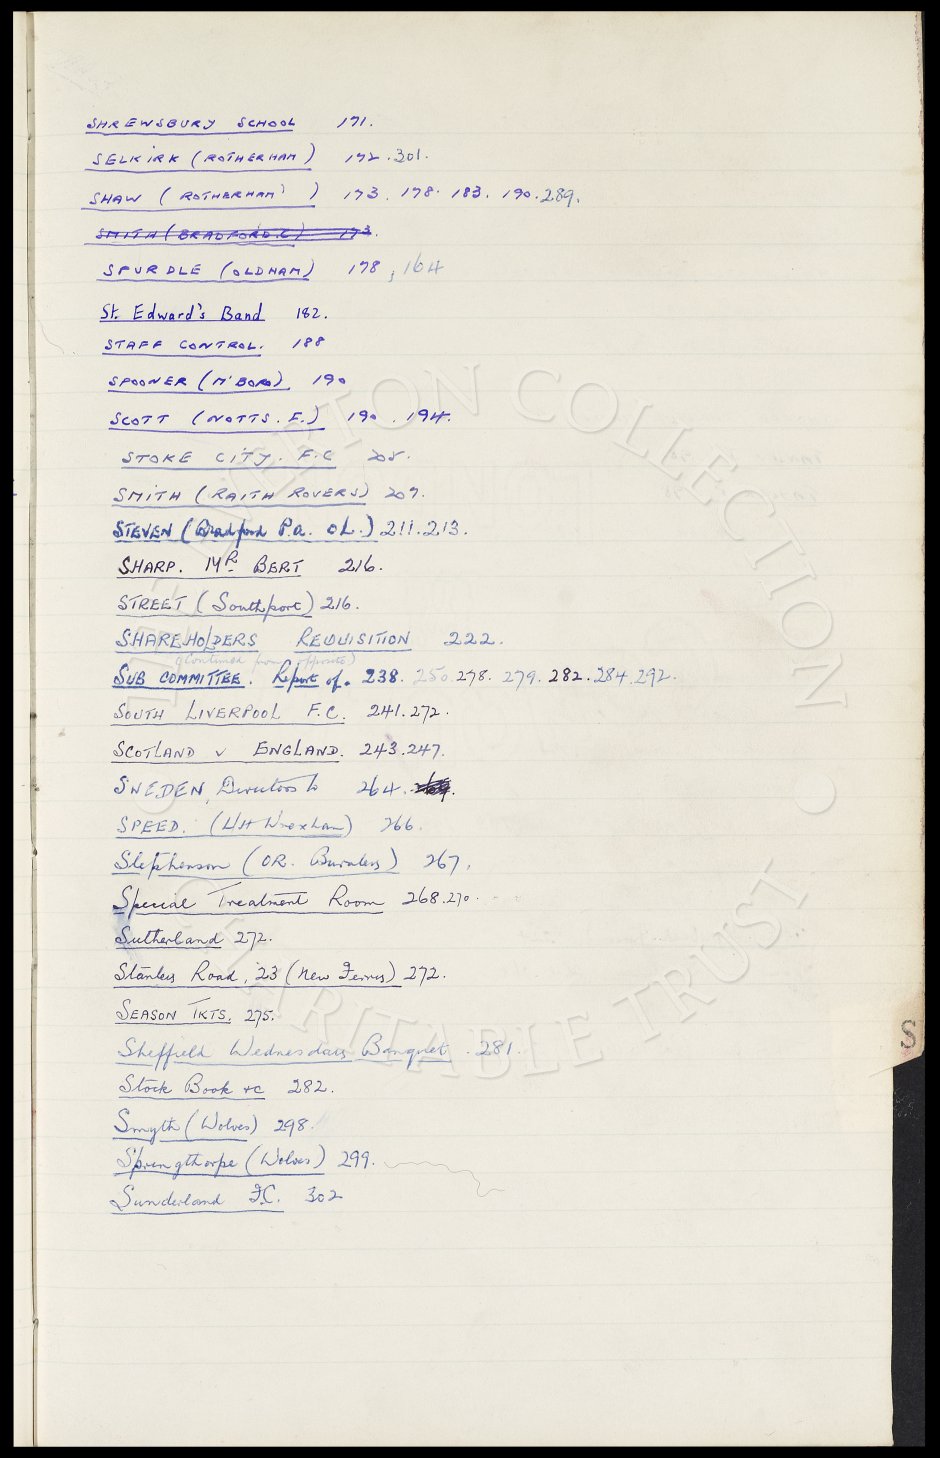 SHREWSBURY SCHOOL 171.
SELKIRK (ROTHERHAM) 172.301.
SHAW (ROTHERHAM) 173. 178. 183. 190.289.
SMITH (BRADFORD.C) 173.
SPURDLE (OLDHAM) 178, 164
St. Edward's Band 182.
STAFF CONTROL. 188
SPOONER (M'BORO) 190
SCOTT (NOTTS. F.) 190. 194.
STOKE CITY. F.C 205.
SMITH (RAITH ROVERS) 207.
STEVEN (Bradford P.a. OL.) 211.213.
SHARP. MR BERT 216.
STREET (Southport) 216.
SHAREHOLDERS REQUISITION 222.
(Continued from opposite)
SUB COMMITTEE. Report of. 238. 250.278. 279. 282. 284.292.
SOUTH LIVERPOOL F.C. 241.272.
SCOTLAND v ENGLAND. 243.247.
SWEDEN, Directors to 264.
SPEED. (LH Wrexham) 266.
Stephenson (OR. Burnley) 267.
Special Treatment Room 268.270.
Sutherland 272.
Stanley Road, 23 (New Ferry) 272.
SEASON TKTS. 275.
Sheffield Wednesdays Banquet. 281.
Stock Book &c 282.
Smyth (Wolves) 298.
Springthorpe (Wolves) 299.
Sunderland F.C. 302
S
EVERTON COLLECTION
CHARITABLE TRUST